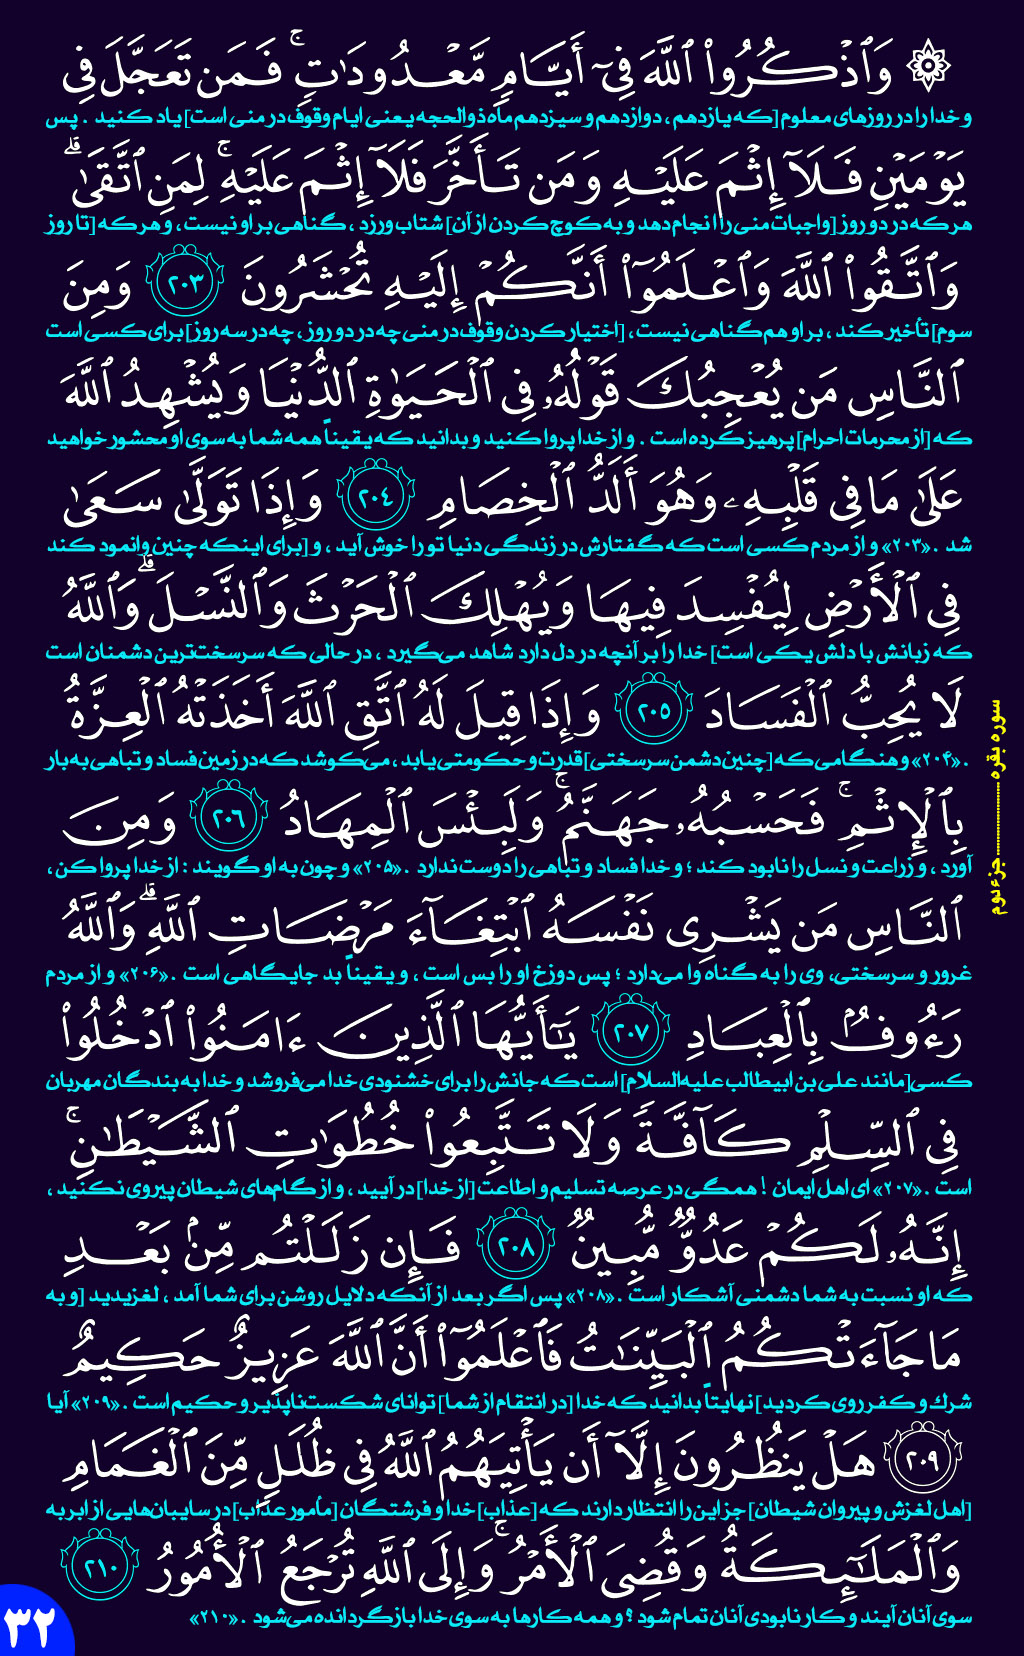 ۞ وَٱذْكُرُوا۟ ٱللَّهَ فِىٓ أَيَّامٍ مَّعْدُودَٰتٍ ۚ فَمَن تَعَجَّلَ فِى
و خدا را در روزهای معلوم [که یازدهم ، دوازدهم و سیزدهم ماه ذوالحجه یعنی ایام وقوف در منی است] یاد کنید . پس
يَوْمَيْنِ فَلَآ إِثْمَ عَلَيْهِ وَمَن تَأَخَّرَ فَلَآ إِثْمَ عَلَيْهِ ۚ لِمَنِ ٱتَّقَىٰ ۗ
هر که در دو روز [واجبات منی را انجام دهد و به کوچ کردن از آن] شتاب ورزد ، گناهی بر او نیست ، و هر که [تا روز
وَٱتَّقُوا۟ ٱللَّهَ وَٱعْلَمُوٓا۟ أَنَّكُمْ إِلَيْهِ تُحْشَرُونَ ٢٠٣ وَمِنَ
سوم] تأخیر کند ، بر او هم گناهی نیست ، [اختیار کردن وقوف در منی چه در دو روز ، چه در سه روز] برای کسی است
ٱلنَّاسِ مَن يُعْجِبُكَ قَوْلُهُۥ فِى ٱلْحَيَوٰةِ ٱلدُّنْيَا وَيُشْهِدُ ٱللَّهَ
که [از محرمات احرام] پرهیز کرده است . و از خدا پروا کنید و بدانید که یقیناً همه شما به سوی او محشور خواهید
عَلَىٰ مَا فِى قَلْبِهِۦ وَهُوَ أَلَدُّ ٱلْخِصَامِ ٢٠٤ وَإِذَا تَوَلَّىٰ سَعَىٰ
شد .«۲۰۳» و از مردم کسی است که گفتارش در زندگی دنیا تو را خوش آید ، و [برای اینکه چنین وانمود کند
فِى ٱلْأَرْضِ لِيُفْسِدَ فِيهَا وَيُهْلِكَ ٱلْحَرْثَ وَٱلنَّسْلَ ۗ وَٱللَّهُ
که زبانش با دلش یکی است] خدا را بر آنچه در دل دارد شاهد می‌گیرد ، در حالی که سرسخت‌ترین دشمنان است
لَا يُحِبُّ ٱلْفَسَادَ ٢٠٥ وَإِذَا قِيلَ لَهُ ٱتَّقِ ٱللَّهَ أَخَذَتْهُ ٱلْعِزَّةُ
.«۲۰۴» و هنگامی که [چنین دشمن سرسختی] قدرت و حکومتی یابد ، می‌کوشد که در زمین فساد و تباهی به بار
بِٱلْإِثْمِ ۚ فَحَسْبُهُۥ جَهَنَّمُ ۚ وَلَبِئْسَ ٱلْمِهَادُ ٢٠٦ وَمِنَ
آورد ، و زراعت و نسل را نابود کند ؛ و خدا فساد و تباهی را دوست ندارد .«۲۰۵» و چون به او گویند : از خدا پروا کن ،
ٱلنَّاسِ مَن يَشْرِى نَفْسَهُ ٱبْتِغَآءَ مَرْضَاتِ ٱللَّهِ ۗ وَٱللَّهُ
غرور و سرسختی، وی را به گناه وا می‌دارد ؛ پس دوزخ او را بس است ، و یقیناً بد جایگاهی است .«۲۰۶» و از مردم
رَءُوفٌۢ بِٱلْعِبَادِ ٢٠٧ يَٰٓأَيُّهَا ٱلَّذِينَ ءَامَنُوا۟ ٱدْخُلُوا۟
کسی [مانند علی بن ابیطالب علیه السلام] است که جانش را برای خشنودی خدا می‌فروشد و خدا به بندگان مهربان
فِى ٱلسِّلْمِ كَآفَّةً وَلَا تَتَّبِعُوا۟ خُطُوَٰتِ ٱلشَّيْطَٰنِ ۚ
است .«۲۰۷» ای اهل ایمان ! همگی در عرصه تسلیم و اطاعت [از خدا] در آیید ، و از گام‌های شیطان پیروی نکنید ،
إِنَّهُۥ لَكُمْ عَدُوٌّ مُّبِينٌ ٢٠٨ فَإِن زَلَلْتُم مِّنۢ بَعْدِ
که او نسبت به شما دشمنی آشکار است .«۲۰۸» پس اگر بعد از آنکه دلایل روشن برای شما آمد ، لغزیدید [و به
مَا جَآءَتْكُمُ ٱلْبَيِّنَٰتُ فَٱعْلَمُوٓا۟ أَنَّ ٱللَّهَ عَزِيزٌ حَكِيمٌ
شرک و کفر روی کردید] نهایتاً بدانید که خدا [در انتقام از شما] توانای شکست‌ناپذیر و حکیم است .«۲۰۹» آیا
٢٠٩ هَلْ يَنظُرُونَ إِلَّآ أَن يَأْتِيَهُمُ ٱللَّهُ فِى ظُلَلٍ مِّنَ ٱلْغَمَامِ
[اهل لغزش و پیروان شیطان] جز این را انتظار دارند که [عذاب] خدا و فرشتگان [مأمور عذاب] در سایبان‌هایی از ابر به
وَٱلْمَلَٰٓئِكَةُ وَقُضِىَ ٱلْأَمْرُ ۚ وَإِلَى ٱللَّهِ تُرْجَعُ ٱلْأُمُورُ ٢١٠
سوی آنان آیند و کار نابودی آنان تمام شود ؟ و همه کارها به سوی خدا بازگردانده می‌شود .«۲۱۰»
سوره بقره .................... جزء دوم
۳۲